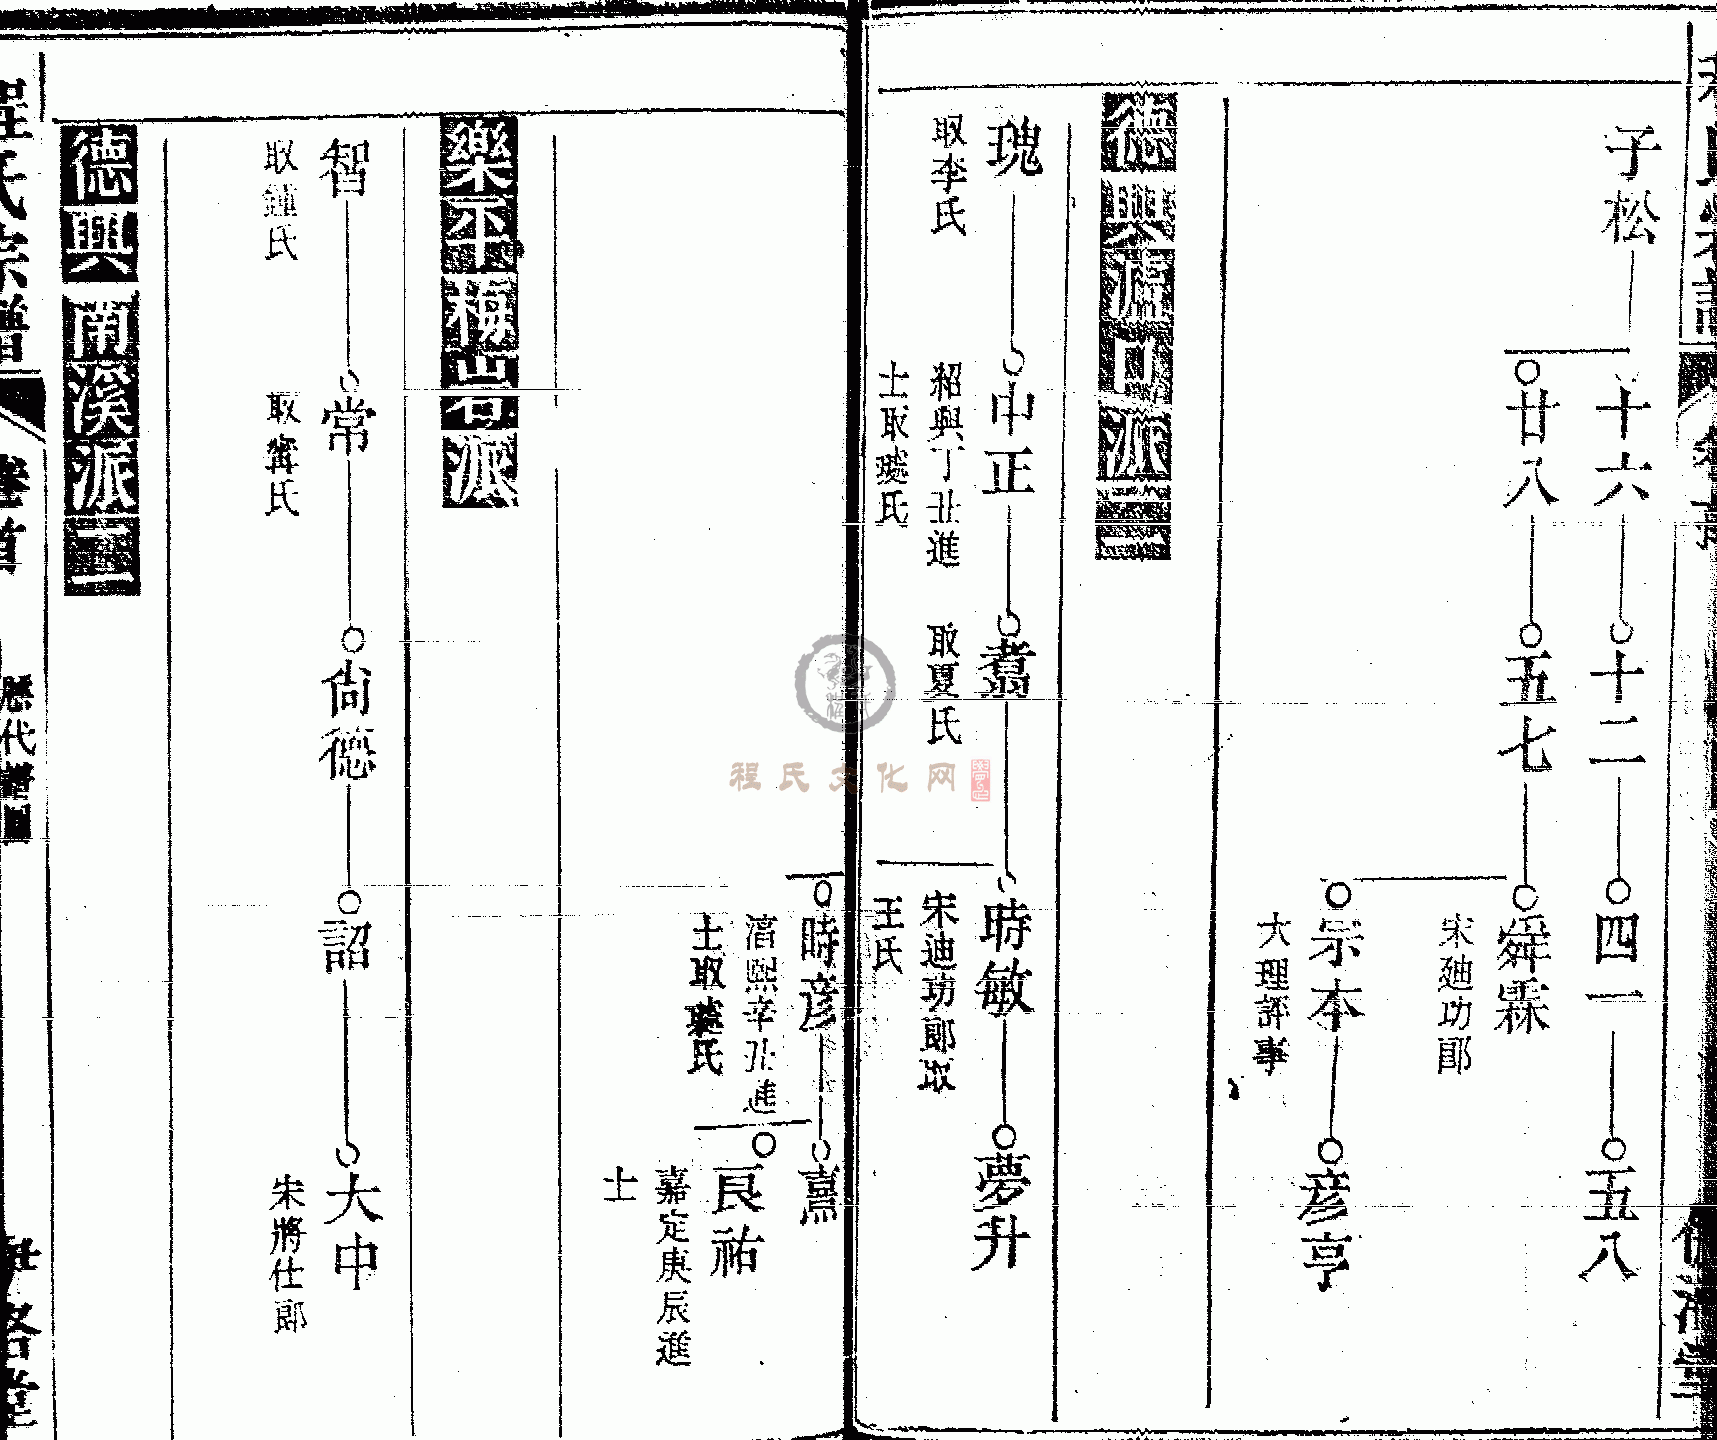 子松
十六
十二
四一
五八
廿八
五七
舜霖
宋廸功郎
宗本
大理評事
彥亨
德興濂口派三
瑰
取李氏
中正
紹興丁丑進
士取璩氏
翥
取夏氏
時敏
宋迪功郎取
王氏
夢升
時彥
淳熙辛丑進
士取璩氏
熹
良祐
嘉定庚辰進
士
樂平梅岩派
智
取鍾氏
常
取甯氏
尚德
詔
大中
宋將仕郎
德興南溪派三
程氏宗譜
卷首
歷代譜圖
程氏文化网